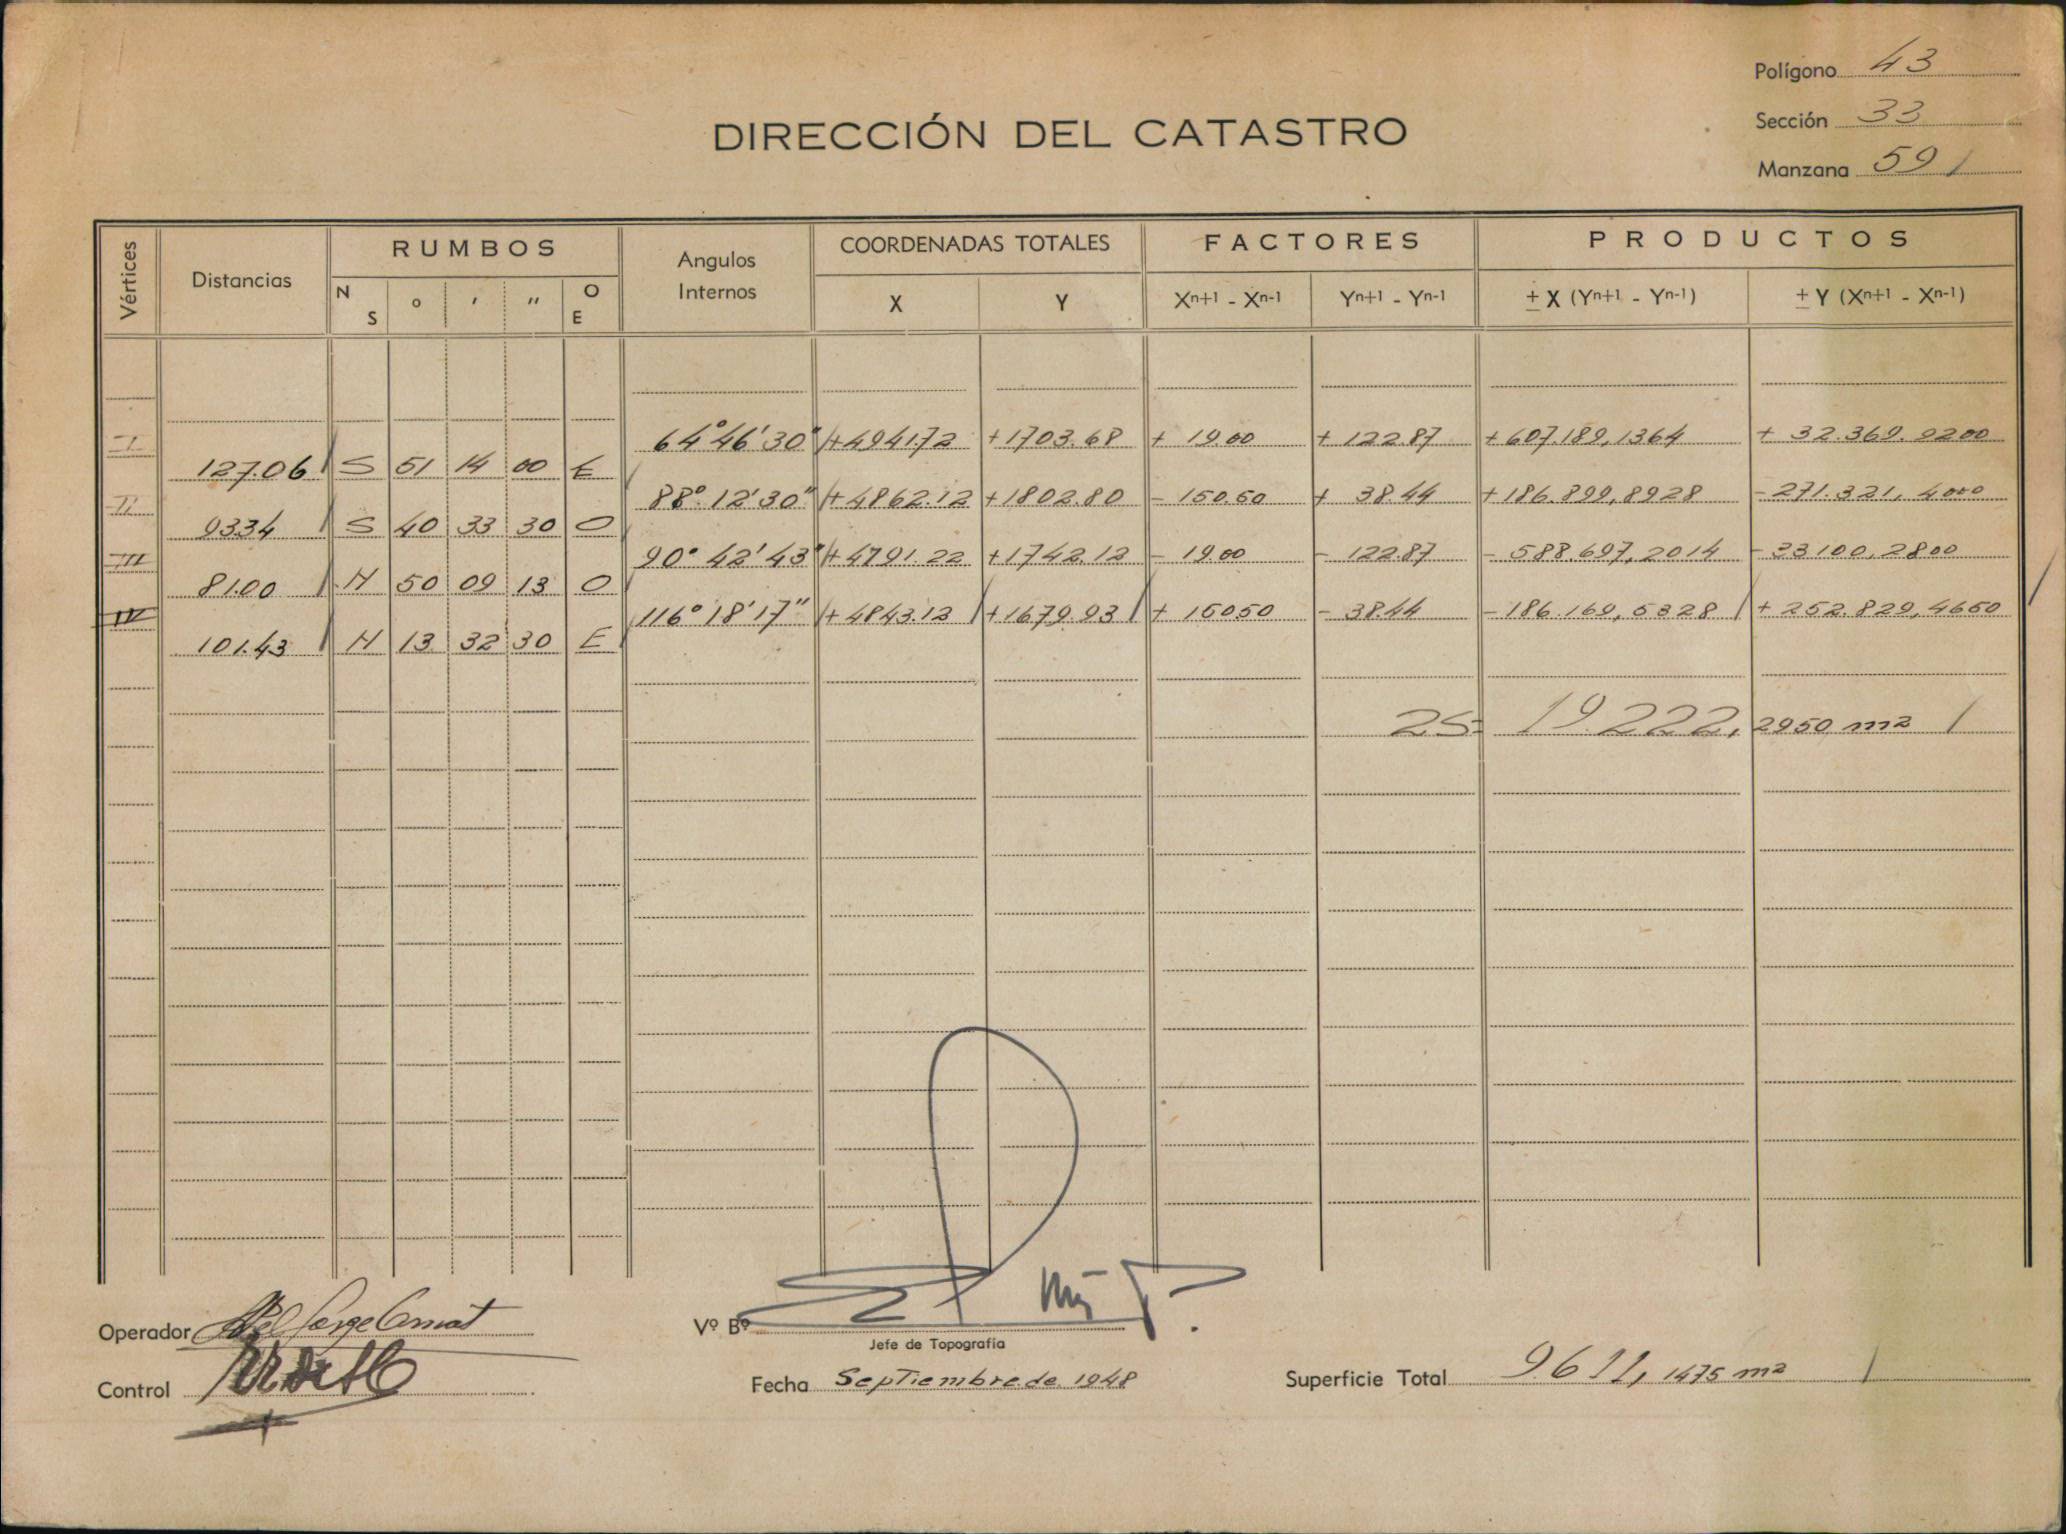 Polígono 43
Sección 33
Manzana 591
DIRECCIÓN DEL CATASTRO
Vértices Distancias RUMBOS Angulos Internos COORDENADAS TOTALES FACTORES PRODUCTOS
N S ° ' '' O E X Y Xn+1 - Xn-1 Yn+1 - Yn-1 ± X (Yn+1 - Yn-1) ± Y (Xn+1 - Xn-1)
I 64° 46' 30" +4941.72 +1703.68 + 19.00 + 122.87 +607.189,1364 + 32.369.9200
127.06 S 51 14 00 E
II 88° 12' 30" +4862.12 +1802.80 - 150.50 + 38.44 +186.899,8928 -271.321,4000
93.34 S 40 33 30 O
III 90° 42' 43" +4791.22 +1742.12 - 19.00 - 122.87 - 588.697,2014 - 33.100,2800
81.00 N 50 09 13 O
IV 116° 18' 17" +4843.12 +1679.93 + 150.50 - 38.44 -186.169,5328 + 252.829,4650
101.43 N 13 32 30 E
2S= 19.222,2950 m2
Operador
Vº Bº
Jefe de Topografía
Control
Fecha Septiembre de 1948
Superficie Total 9.611,1475 m2